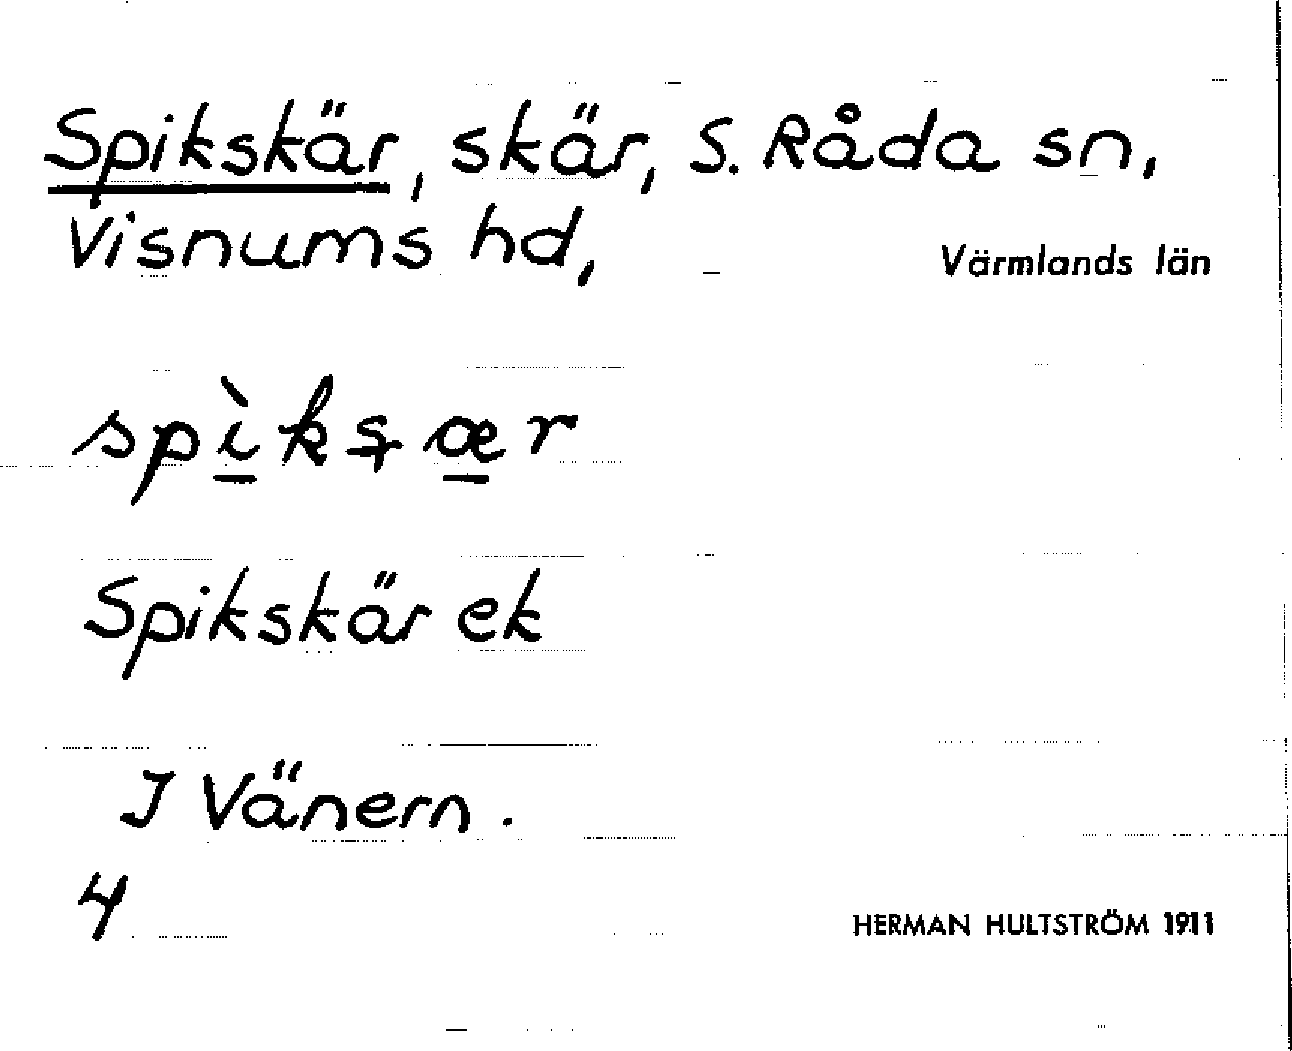 Spikskär, skär, S. Råda sn,
Visnums hd, Värmlands län
spı̀kʂær
Spikskär ek
I Vänern.
4
HERMAN HULTSTRÖM 1911